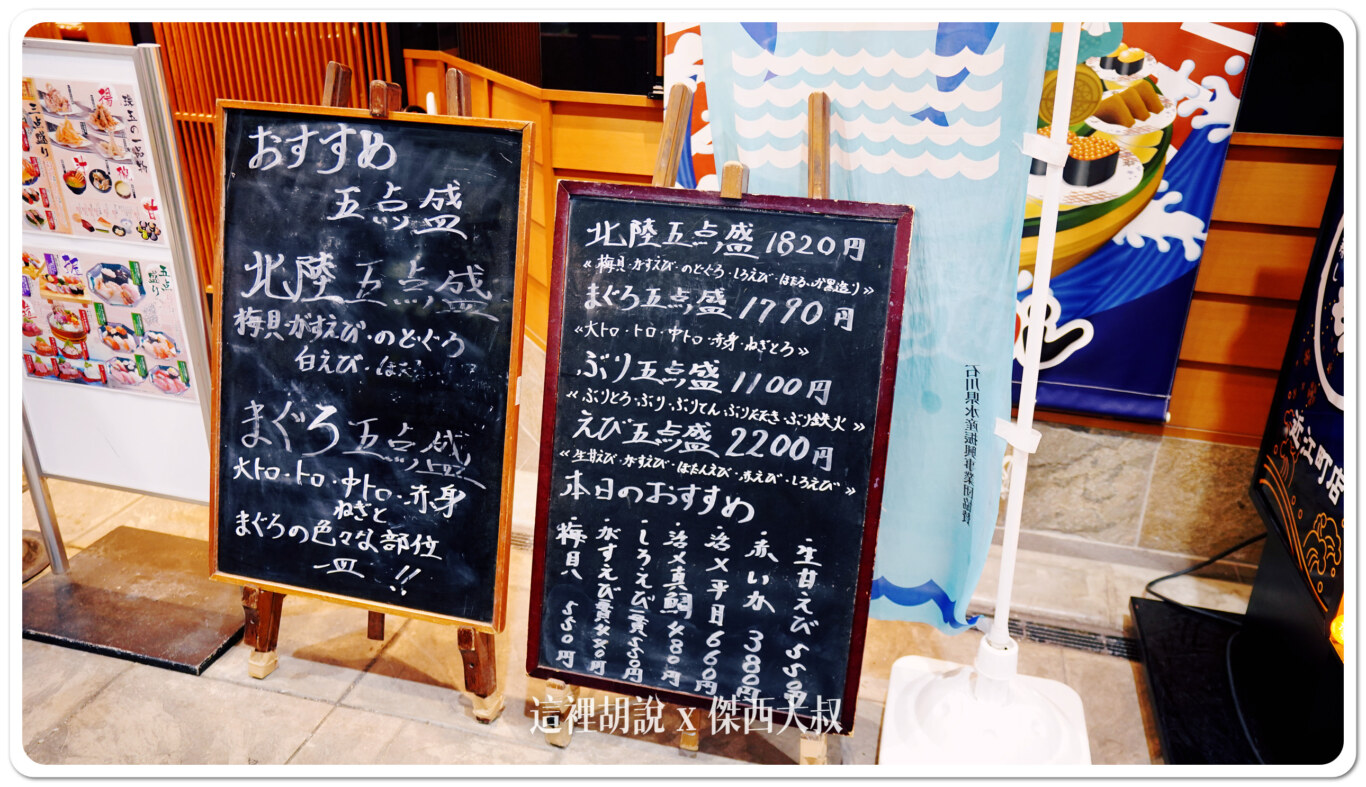 おすすめ
五点盛
北陸五点盛
梅貝・がすえび・のどぐろ
白えび・ほ
まぐろ五点盛
大トロ・トロ・中トロ・赤身
ねぎと
まぐろの色々な部位
一皿!!
北陸五点盛 1820円
≪梅貝・がすえび・のどぐろ・しろえび・ほたるいか黒造り≫
まぐろ五点盛 1790円
≪大トロ・トロ・中トロ・赤身・ねぎとろ≫
ぶり五点盛 1100円
≪ぶりとろ・ぶり・ぶりてん・ぶりたたき・ぶり鉄火≫
えび五点盛 2200円
≪生甘えび・がすえび・ぼたんえび・赤えび・しろえび≫
本日のおすすめ
・生甘えび 550円
・赤いか 380円
・活〆平目 660円
・活〆真鯛 480円
・しろえび一貫550円
・がすえび一貫480円
・梅貝 550円
三点盛り
五点盛り
石川県水産振興事業団協賛
近江町店
這裡胡說 x 傑西大叔